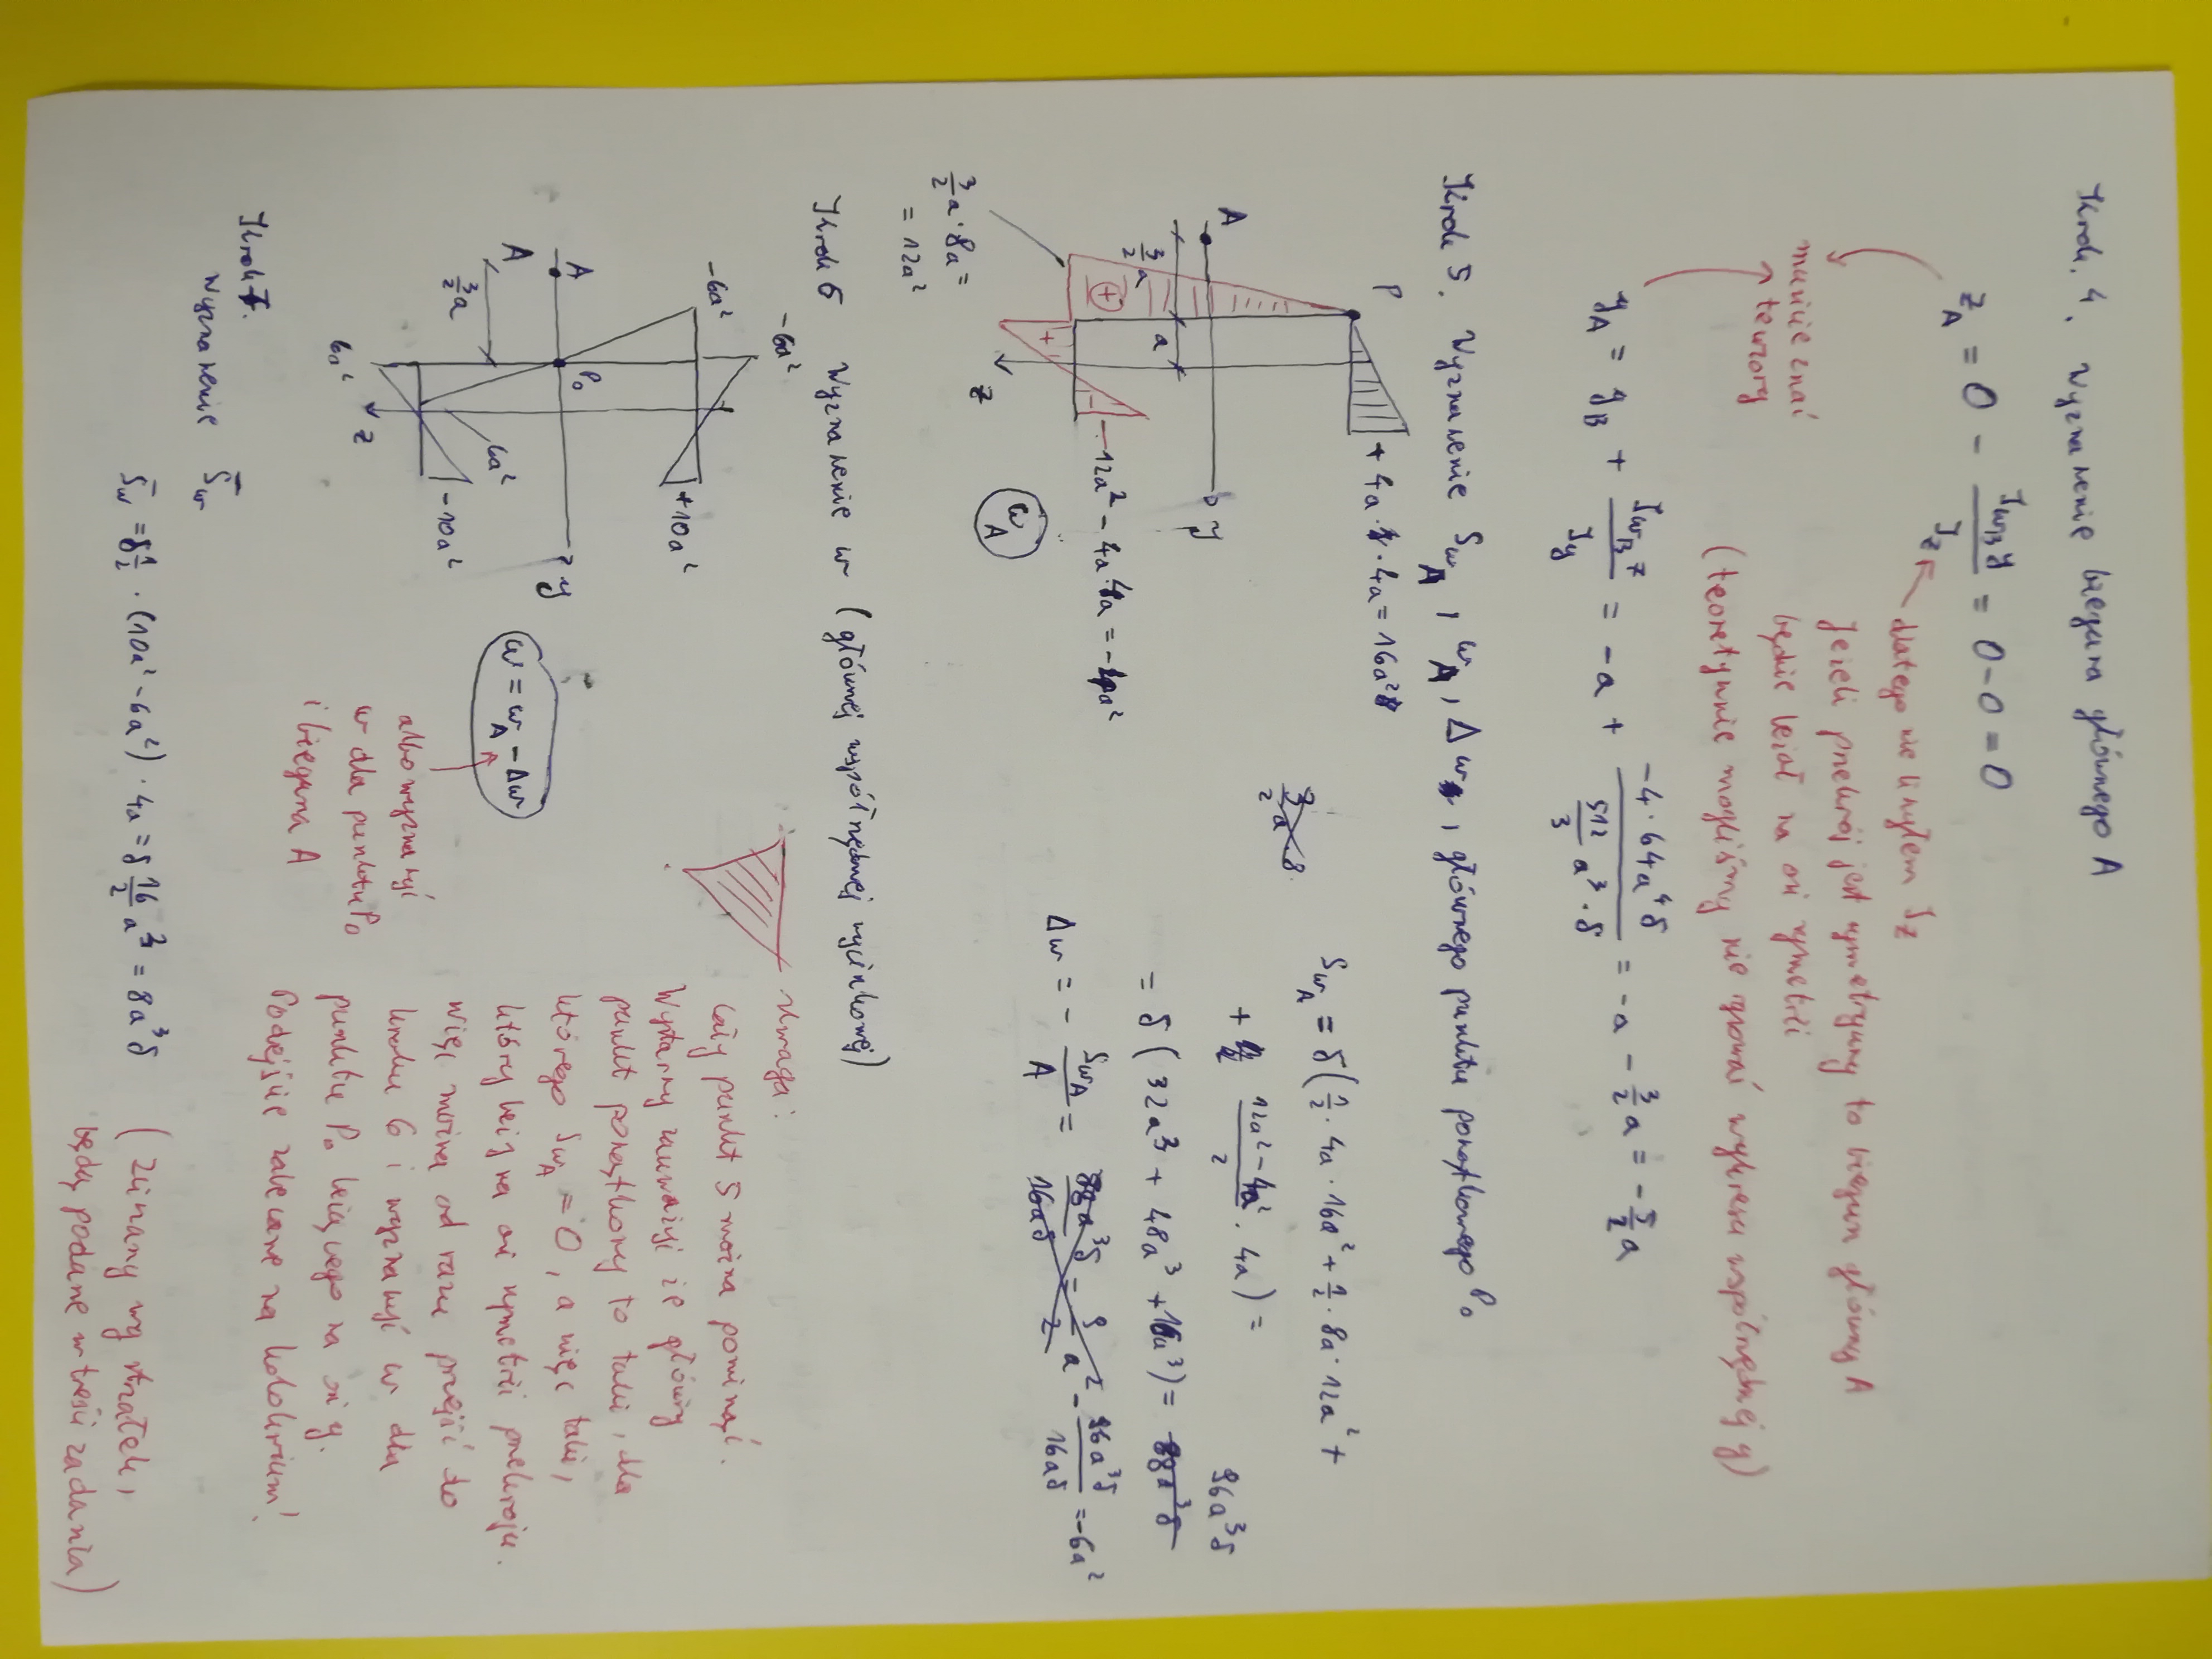 Krok. 4. Wyznaczenie bieguna głównego A
z_A = 0 - J_{ω_B y} / J_z = 0 - 0 = 0
musicie znać
te wzory
dlatego nie liczyłem J_z
Jeżeli przekrój jest symetryczny to biegun główny A
będzie leżał na osi symetrii
(teoretycznie mogliśmy nie rysować wykresu współrzędnej y)
y_A = y_B + J_{ω_B z} / J_y = -a + (-4·64a⁴δ) / (512/3 a³·δ) = -a - 3/2 a = -5/2 a
Krok 5. Wyznaczenie S_{ω_A}, ω_A, Δω, głównego punktu początkowego P₀
P
+ 4a · 4a = 16a²
A
3/2 a
a
y
z
3/2 a · 8a =
= 12a²
+
+
-
12a² - 4a·4a = -4a²
ω_A
3/2 a 8.
S_{ω_A} = δ(1/2 · 4a · 16a² + 1/2 · 8a · 12a² +
+ (12a² - 4a²)/2 · 4a) =
= δ(32a³ + 48a³ + 16a³) = 96a³δ
Δω = - S_{ω_A} / A = - 96a³δ / 16aδ = -6a²
Krok 6 Wyznaczenie ω (głównej współrzędnej wycinkowej)
-6a²
-6a²
+10a²
A
A
P₀
y
3/2 a
6a²
6a²
z
-10a²
ω = ω_A - Δω
albo wyznaczyć
ω dla punktu P₀
i bieguna A
Uwaga:
Cały punkt 5 można pominąć.
Wystarczy zauważyć że główny
punkt początkowy to taki, dla
którego S_{ω_A} = 0, a więc taki,
który leży na osi symetrii przekroju.
Więc można od razu przejść do
kroku 6 i wyznaczyć ω dla
punktu P₀ leżącego na osi y.
Podejście zalecane na kolokwium!
Krok 7.
Wyznaczenie S̄_ω
S̄_ω = δ 1/2 · (10a² - 6a²) · 4a = δ 16/2 a³ = 8a³δ
(zginany czy strzałek,
będą podane w treści zadania)